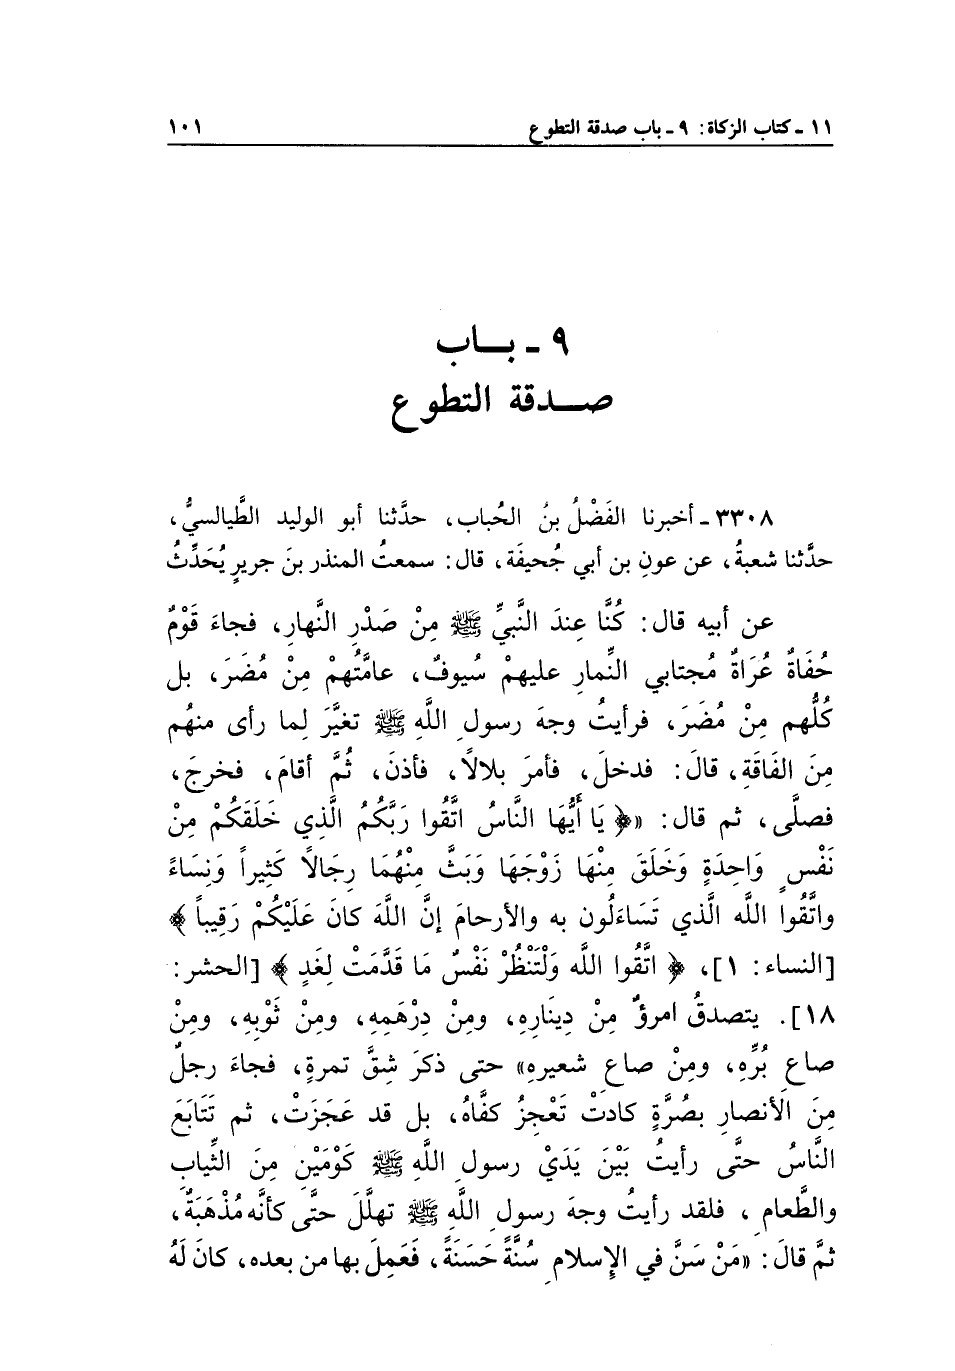 ١١ ـ كتاب الزكاة: ٩ ـ باب صدقة التطوع ١٠١
٩ ـ بـــاب
صـــدقة التطوع
٣٣٠٨ ـ أخبرنا الفَضْلُ بنُ الحُباب، حدَّثنا أبو الوليد الطَّيالسيُّ،
حدَّثنا شعبةُ، عن عونِ بن أبي جُحيفَة، قال: سمعتُ المنذر بنَ جريرٍ يُحَدِّثُ
عن أبيه قال: كُنَّا عِندَ النَّبيِّ ﷺ مِنْ صَدْرِ النَّهارِ، فجاءَ قَوْمٌ
حُفَاةٌ عُرَاةٌ مُجتابي النِّمارِ عليهمْ سُيوفٌ، عامَّتُهمْ مِنْ مُضَرَ، بل
كُلُّهم مِنْ مُضَرَ، فرأيتُ وجهَ رسولِ اللَّهِ ﷺ تغيَّرَ لِما رأى منهُم
مِنَ الفَاقَةِ، قالَ: فدخلَ، فأمرَ بلالًا، فأذنَ، ثُمَّ أقامَ، فخرجَ،
فصلَّى، ثم قال: «﴿ يَا أَيُّهَا النَّاسُ اتَّقُوا رَبَّكُمُ الَّذِي خَلَقَكُمْ مِنْ
نَفْسٍ وَاحِدَةٍ وَخَلَقَ مِنْهَا زَوْجَهَا وَبَثَّ مِنْهُمَا رِجَالاً كَثِيراً وَنِسَاءً
واتَّقُوا اللَّه الَّذي تَسَاءَلُون به والأرحامَ إنَّ اللَّهَ كانَ عَلَيْكُمْ رَقِيباً ﴾
[النساء: ١]، ﴿ اتَّقُوا اللَّه وَلْتَنْظُرْ نَفْسٌ مَا قَدَّمَتْ لِغَدٍ ﴾ [الحشر:
١٨]. يتصدقُ امرؤٌ مِنْ دِينَارِهِ، ومِنْ دِرْهَمِهِ، ومِنْ ثَوْبِهِ، ومِنْ
صاعِ بُرِّهِ، ومِنْ صاعِ شعيرِهِ» حتى ذكرَ شِقَّ تمرةٍ، فجاءَ رجلٌ
مِنَ الأنصارِ بصُرَّةٍ كادتْ تَعْجِزُ كفَّاهُ، بل قد عَجَزَتْ، ثم تَتَابَعَ
النَّاسُ حتَّى رأيتُ بَيْنَ يَدَيْ رسولِ اللَّهِ ﷺ كَوْمَيْنِ مِنَ الثِّيابِ
والطَّعامِ، فلقد رأيتُ وجهَ رسولِ اللَّهِ ﷺ تهلَّلَ حتَّى كأنَّه مُذْهَبَةٌ،
ثمَّ قالَ: «مَنْ سَنَّ في الإسلامِ سُنَّةً حَسَنَةً، فَعَمِلَ بها من بعده، كانَ لَهُ